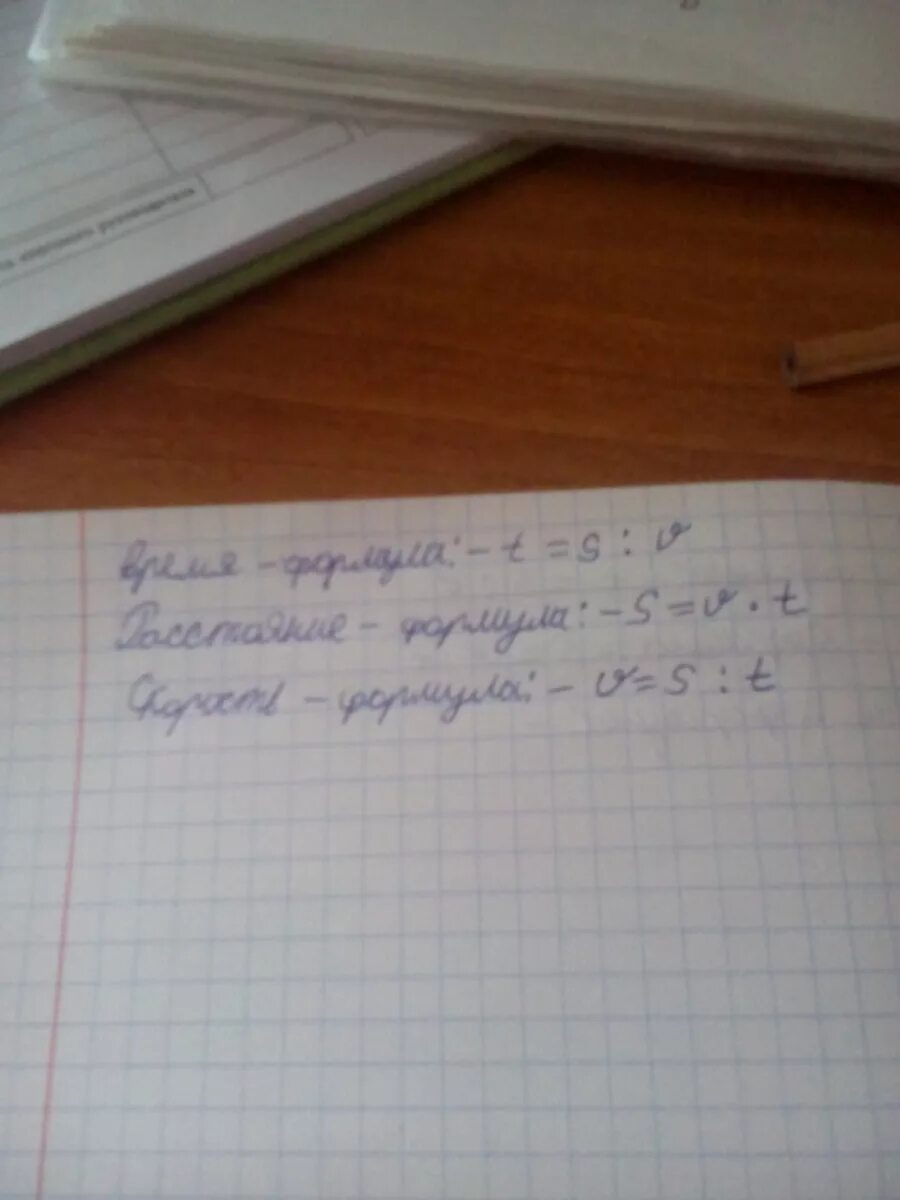 та классного руководителя
время - формула: - t = s : v
Расстояние - формула: - S = v · t
Скорость - формула: - v = S : t